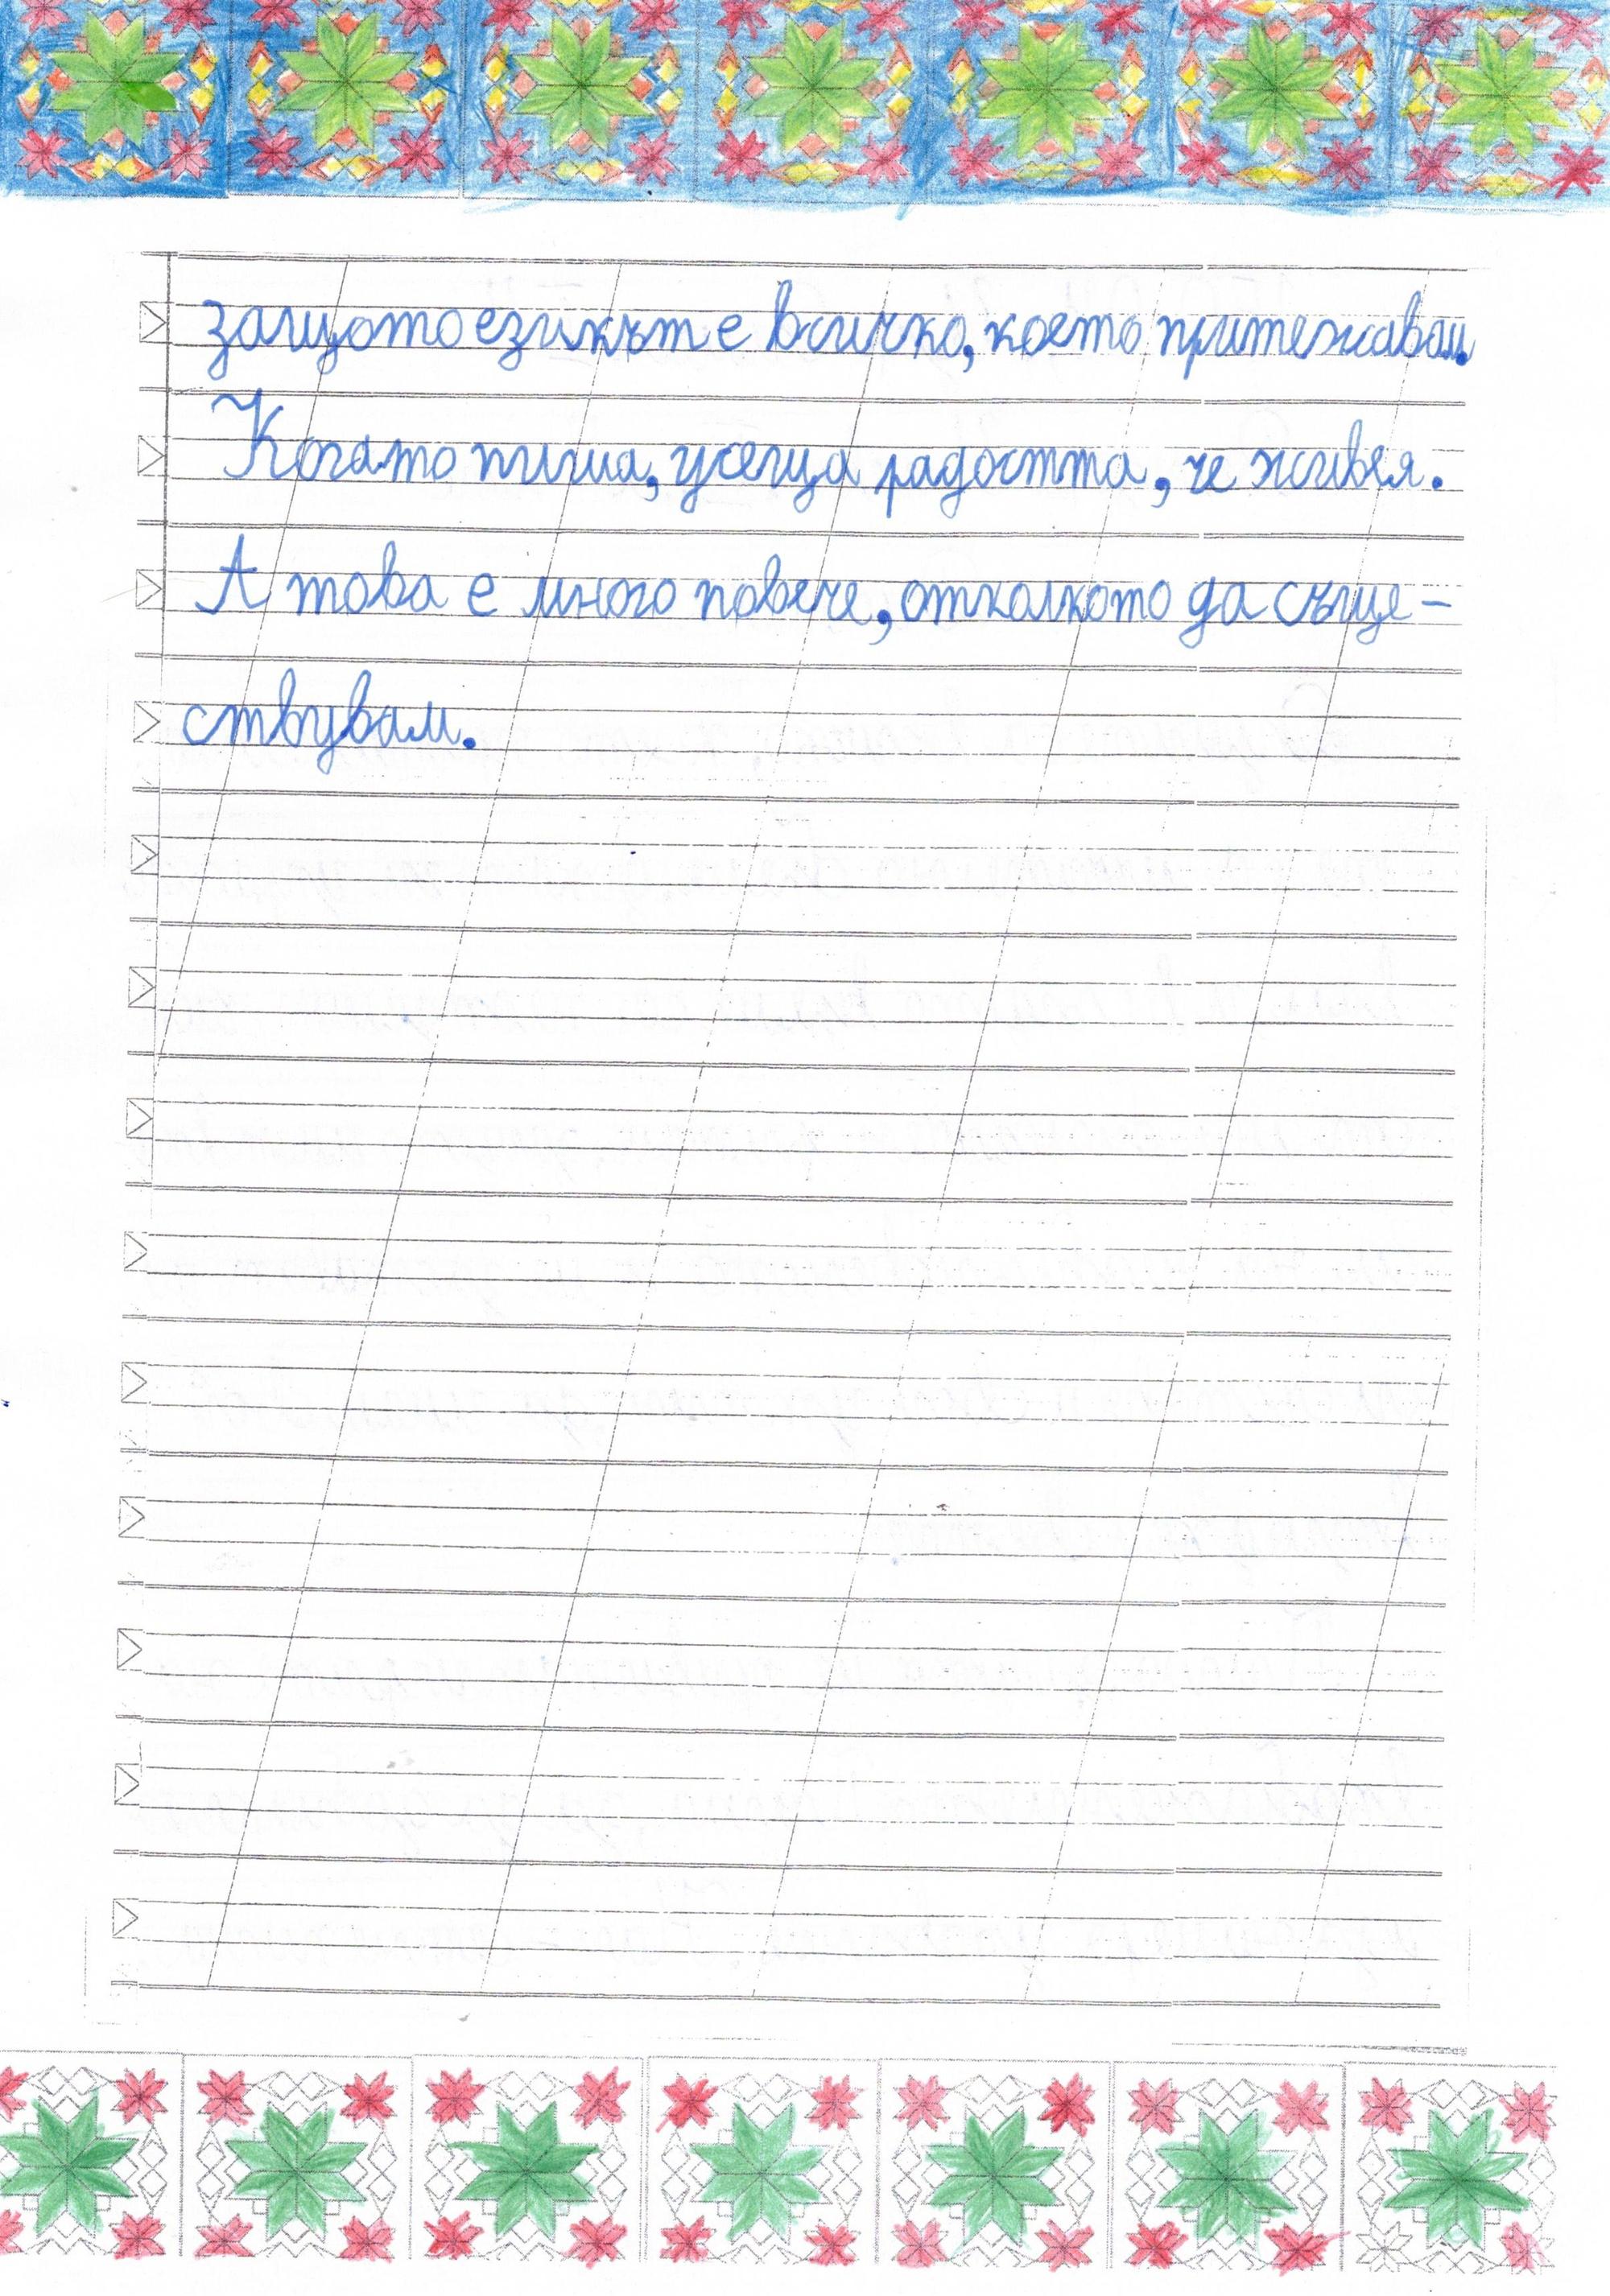 защото езикът е всичко, което притежавам.
Когато пиша, усеща радостта, че живея.
А това е много повече, отколкото да съще-
ствувам.